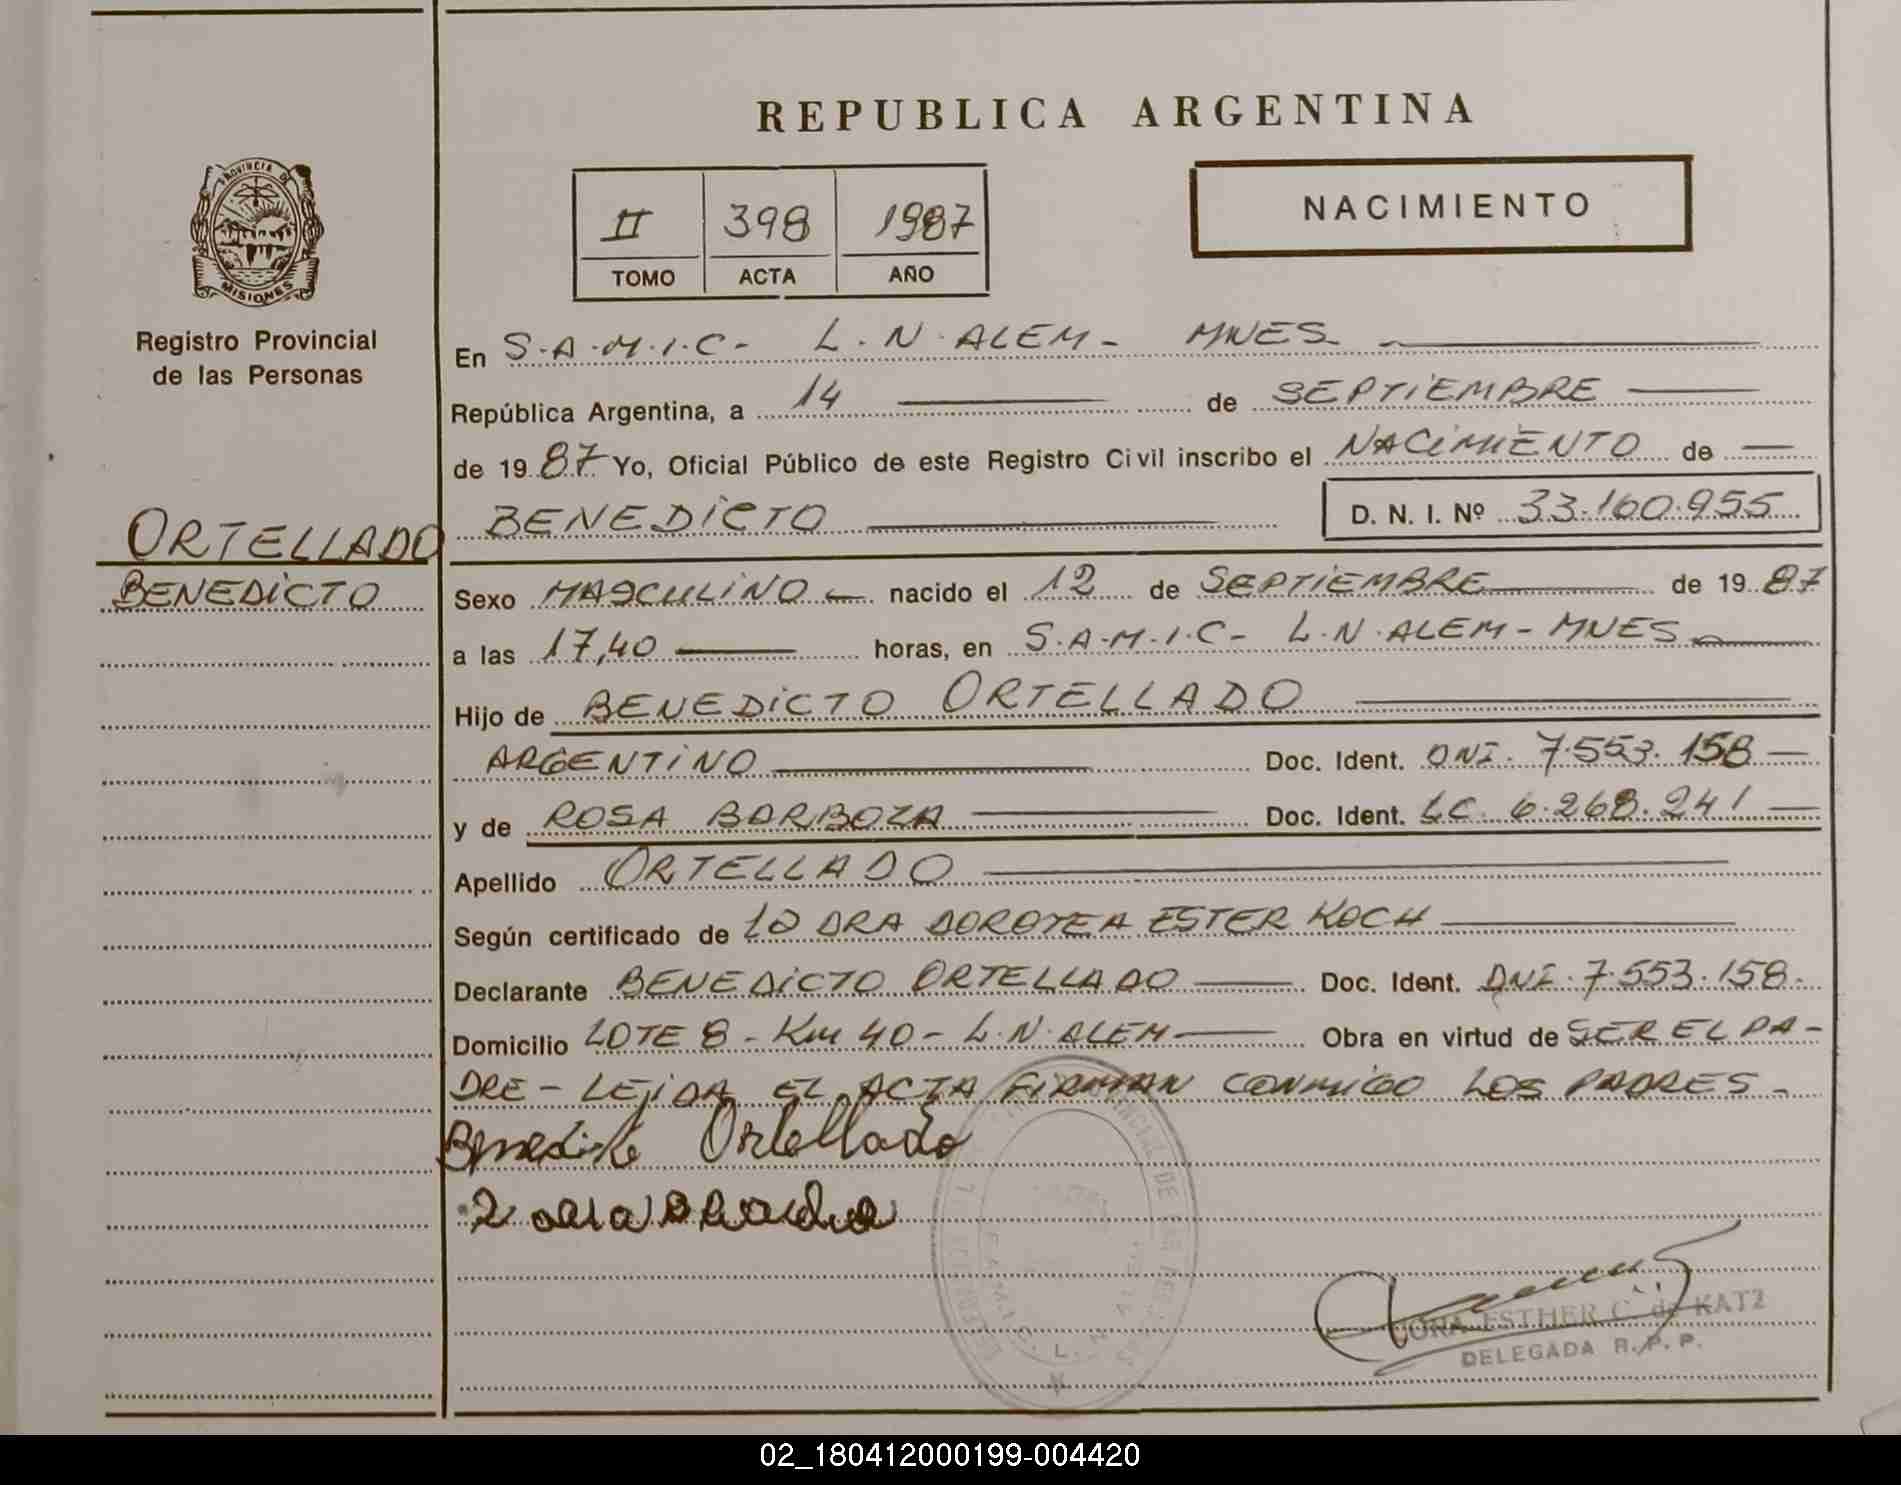 REPUBLICA ARGENTINA
PROVINCIA DE
MISIONES
Registro Provincial
de las Personas
II 398 1987
TOMO ACTA AÑO
NACIMIENTO
En S.A.M.I.C- L.N.ALEM- MNES
República Argentina, a 14 de SEPTIEMBRE
de 19 87 Yo, Oficial Público de este Registro Civil inscribo el NACIMIENTO de
ORTELLADO
BENEDICTO
BENEDICTO D. N. I. Nº 33.160.955
Sexo MASCULINO nacido el 12 de SEPTIEMBRE de 19 87
a las 17,40 horas, en S.A.M.I.C- L.N.ALEM-MNES
Hijo de BENEDICTO ORTELLADO
ARGENTINO Doc. Ident. DNI. 7.553.158
y de ROSA BARBOZA Doc. Ident. LC 6.268.241
Apellido ORTELLADO
Según certificado de LA DRA DOROTEA ESTER KOCH
Declarante BENEDICTO ORTELLADO Doc. Ident. DNI.7.553.158.
Domicilio LOTE 8 - Km 40 - L.N.ALEM Obra en virtud de SER EL PA-
DRE - LEIDA EL ACTA FIRMAN CONMIGO LOS PADRES-
Benedicto Ortellado
ESTHER C. de KATZ
DELEGADA R.P.P.
02_180412000199-004420